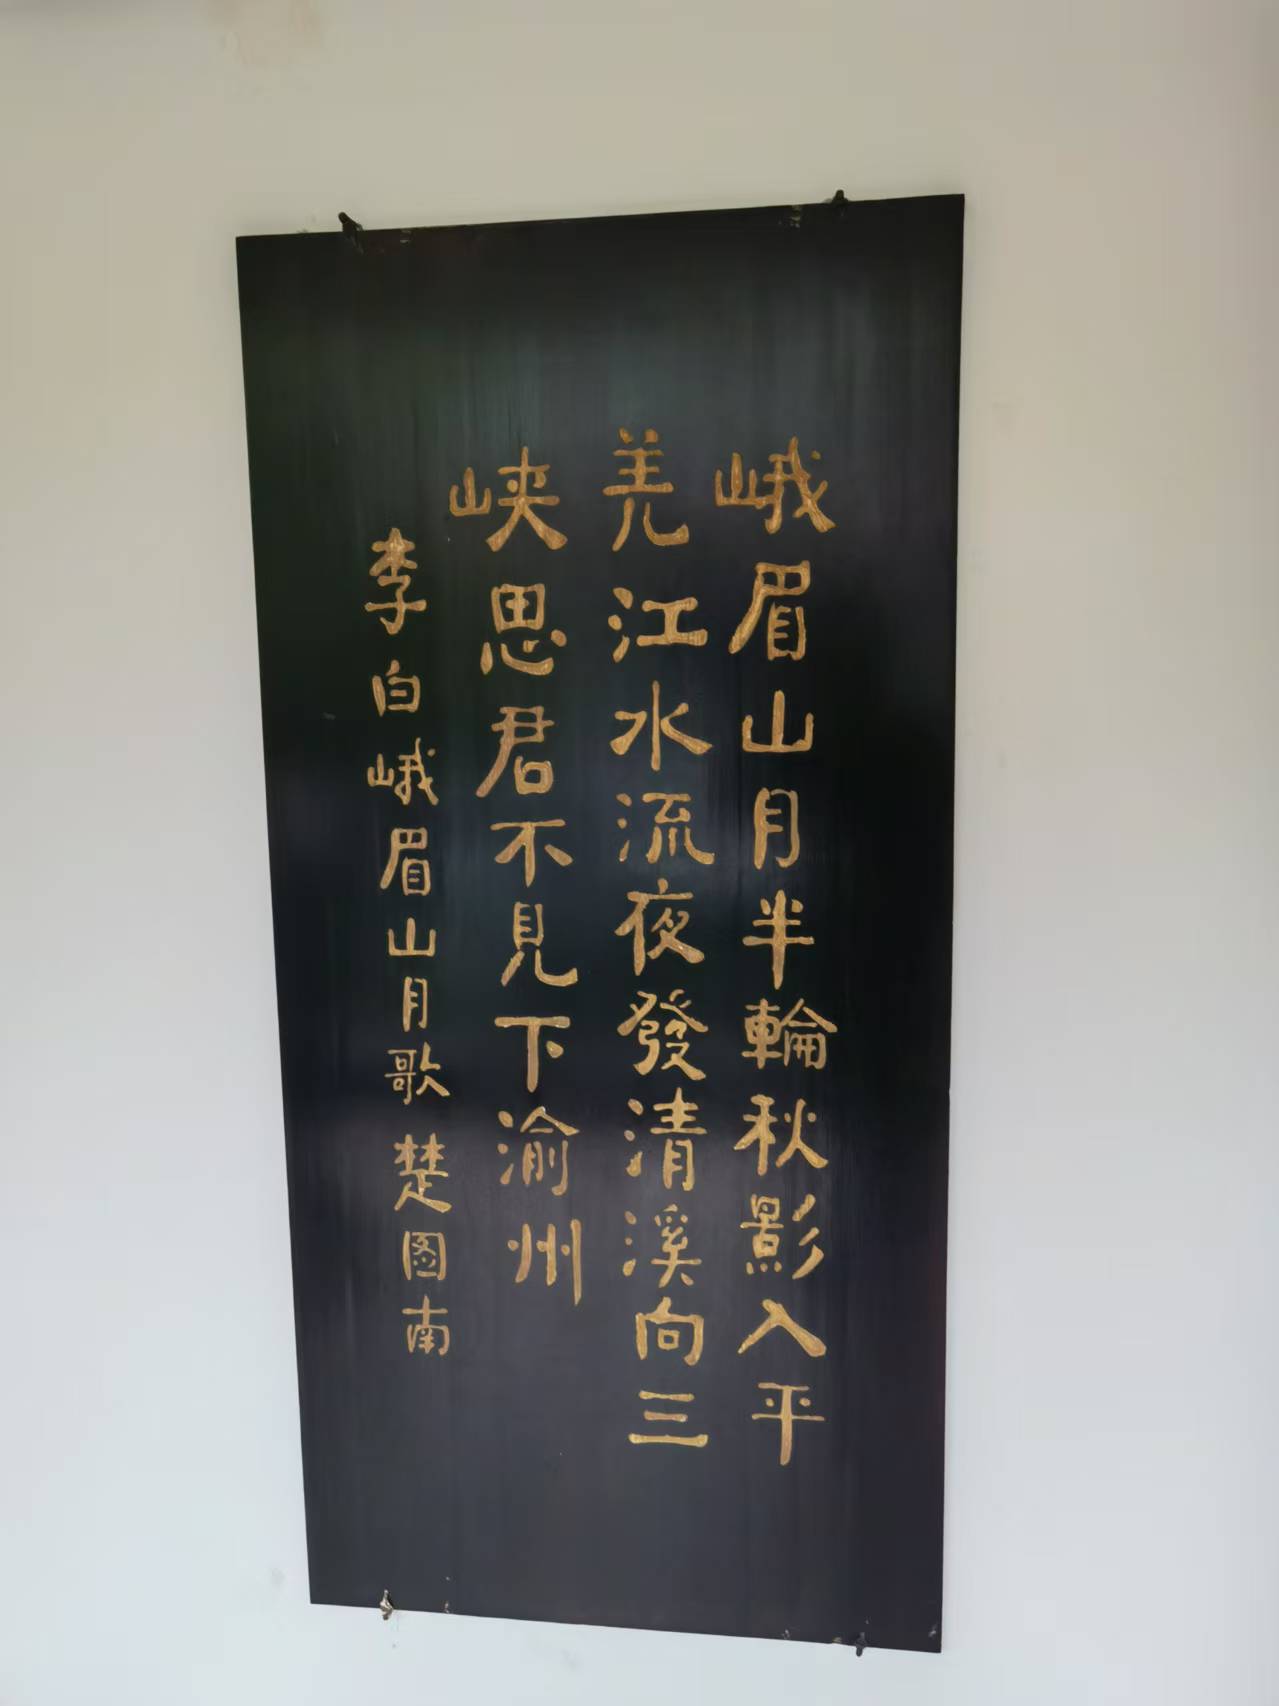 峨眉山月半輪秋影入平
羌江水流夜發清溪向三
峡思君不見下渝州
李白峨眉山月歌 楚图南